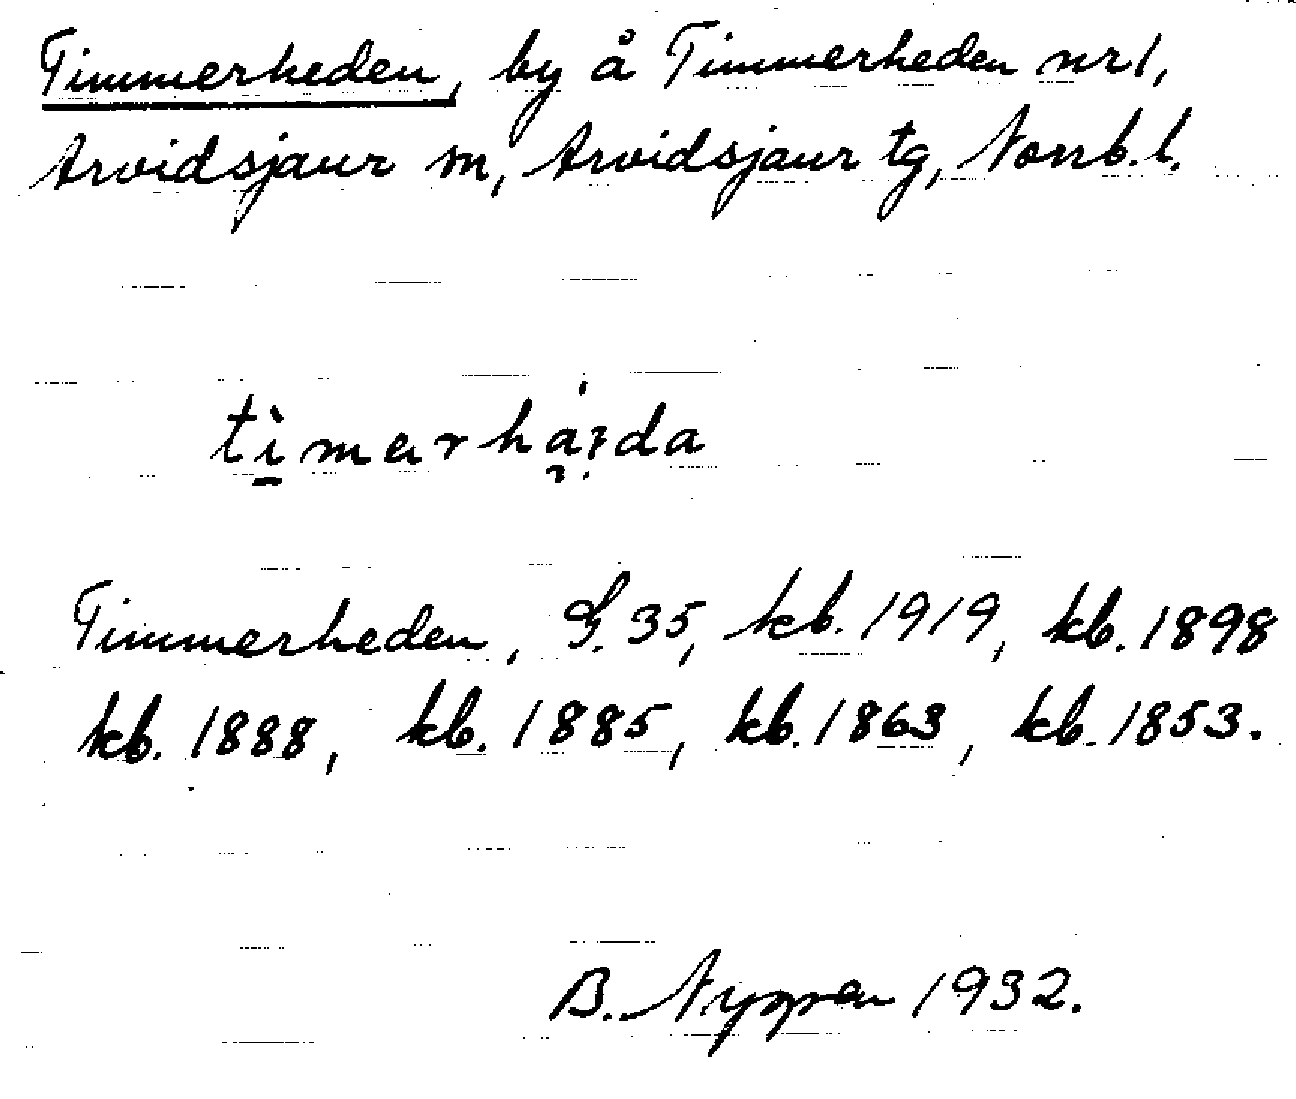 Timmerheden, by å Timmerheden nr 1,
Arvidsjaur sn, Arvidsjaur tg, Norrb. l.
Timmerheden, G. 35, kb. 1919, kb. 1898
kb. 1888, kb. 1885, kb. 1863, kb. 1853.
B. Nyman 1932.